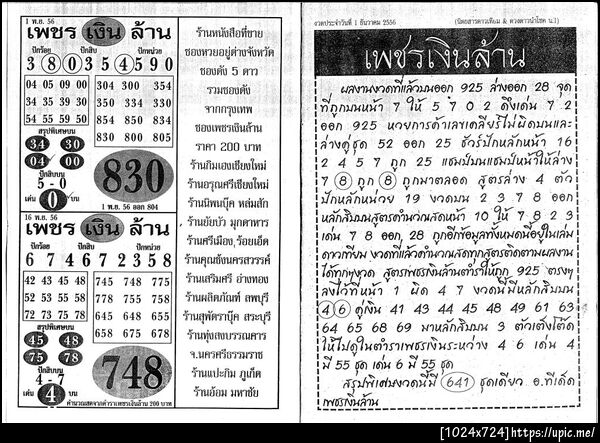 1 พ.ย. 56
เพชร เงิน ล้าน
ปักร้อย ปักสิบ ปักหน่วย
3 8 0 3 5 4 5 9 0
04 05 09 00
30 35 39 50
34 54 55 59 50
304 300 354
350 394 390
804 800 854
830 894 890
404 400 454
430 494 490
504 500 554
830 800 805
สรุปพิเศษบน
34 30
04 00
ปักสิบบน
5 - 0
เด่น 0 บน
830
1 พ.ย. 56 ออก 804
16 พ.ย. 56
เพชร เงิน ล้าน
ปักร้อย ปักสิบ ปักหน่วย
6 7 4 6 7 2 3 5 8
42 43 45 48
52 53 55 58
72 73 75 78
745 748 775
778 725 728
743 773 723
645 648 675
678 625 628
643 673 623
445 448 475
658 675 678
สรุปพิเศษบน
45 48
75 78
ปักสิบบน
4 - 7
เด่น 4 บน
748
คำนวณสดจากตำราเพชรเงินล้าน 200 บาท
ร้านหนังสือที่ขาย
ซองหวยอยู่ต่างจังหวัด
ซองดัง 5 ดาว
รวมซองดัง
จากกรุงเทพ
ซองเพชรเงินล้าน
ราคา 200 บาท
ร้านกิมเองเชียงใหม่
ร้านอรุณศรีเชียงใหม่
ร้านนิพนบุ๊ค หล่มสัก
ร้านยัยบัว มุกดาหาร
ร้านศรีเมือง,ร้อยเอ็ด
ร้านคุณอังคนครสวรรค์
ร้านเสริมศรี อ่างทอง
ร้านผลิตภัณฑ์ ลพบุรี
ร้านสุพัตราบุ๊ค สระบุรี
ร้านทุ่งสงบรรณคาร
จ.นครศรีธรรมราช
ร้านแปะกิม ภูเก็ต
ร้านอ้อม มหาชัย
งวดประจำวันที่ 1 ธันวาคม 2556 (นิตยสารดาวเทียม & ดวงดาวนำโชค น.1)
เพชรเงินล้าน
ผลงานงวดที่แล้วบนออก 925 ล่างออก 28 ชุด
ที่ถูกบนหน้า 7 ให้ 5 7 0 2 ดึงเด่น 7 2
ออก 925 หวยการด้าเลขเคลียร์ไม่ผิดบนและ
ล่างคู่ชุด 52 ออก 25 ชัวร์ปักหลักหน้า 16
2 4 5 7 ถูก 25 แชมป์บนแชมป์หน้าให้ล่าง
7 8 ถูก 8 ถูกมาตลอด สูตรล่าง 4 ตัว
ปักหลักหน่วย 19 งวดบน 2 3 7 8 ออก
หลักสิบบนสูตรคำนวณสดหน้า 10 ให้ 7 8 2 3
เด่น 7 8 ออก 28 ถูกอีกข้อมูลทั้งหมดนี้อยู่ในเล่ม
ดาวเทียม งวดที่แล้วคำนวณสดทุกสูตรติดตามผลงาน
ได้ทุกๆงวด สูตรเพชรเงินล้านตำราให้ถูก 925 ตรงๆ
ลงไว้ที่หน้า 1 ผิด 4 7 งวดนี้มีหลักสิบบน
4 6 คู่เงิน 41 43 44 45 48 49 61 63
64 65 68 69 มาหลักสิบบน 3 ตัวเต็งโต๊ด
ให้ไปดูในตำราเพชรเงินระหว่าง 4 6 เด่น 4
มี 55 ชุด เด่น 6 มี 55 ชุด
สรุปพิเศษงวดนี้มี 641 ชุดเดียว อ.ทีเด็ด
เพชรเงินล้าน
[1024x724]https://upic.me/